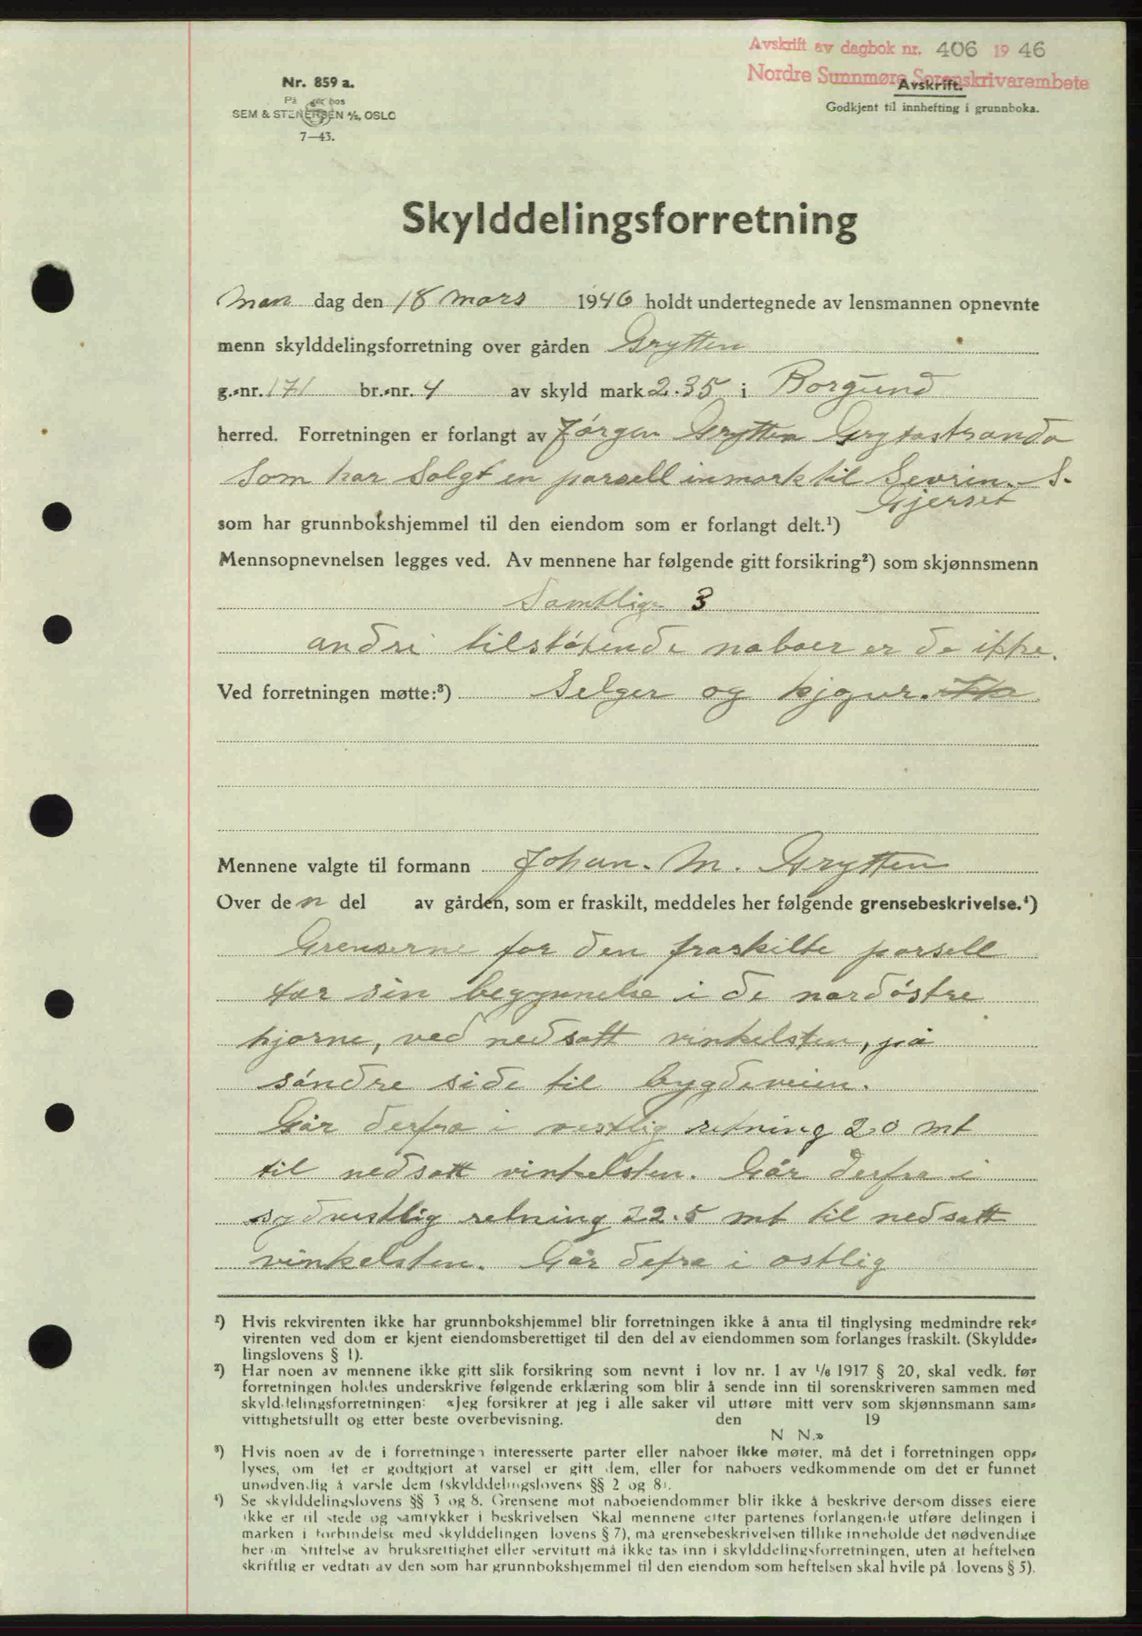 Avskrift av dagbok nr. 406 1946
Nordre Sunnmøre Sorenskrivarembete
Avskrift.
Godkjent til innhefting i grunnboka.
Nr. 859 a.
På hos
SEM & STENERSEN A/S, OSLO
7—43.
Skylddelingsforretning
Man dag den 18 mars 1946 holdt undertegnede av lensmannen opnevnte
menn skylddelingsforretning over gården Grytten
g.-nr. 171 br.-nr. 4 av skyld mark 2.35 i Borgund
herred. Forretningen er forlangt av Jørgen Grytten Grytastranda
Som har Solgt en parsell inmark til Sevrin. S.
Gjerset
som har grunnbokshjemmel til den eiendom som er forlangt delt.¹)
Mennsopnevnelsen legges ved. Av mennene har følgende gitt forsikring²) som skjønnsmenn
Samtlige 3
andre tilstøtende naboer er de ikke.
Ved forretningen møtte:³) Selger og kjøper.
Mennene valgte til formann Johan. M. Grytten
Over den del av gården, som er fraskilt, meddeles her følgende grensebeskrivelse.⁴)
Grenserne for den fraskilte parsell
tar sin begynnelse i de nordöstre
hjørne, ved nedsatt vinkelsten, på
söndre side til bygdeveien.
Går derfra i vestlig retning 20 mt
til nedsatt vinkelsten. Går derfra i
sydvestlig retning 22.5 mt til nedsatt
vinkelsten. Går defra i ostlig
¹) Hvis rekvirenten ikke har grunnbokshjemmel blir forretningen ikke å anta til tinglysing medmindre rek-
virenten ved dom er kjent eiendomsberettiget til den del av eiendommen som forlanges fraskilt. (Skyldde-
lingslovens § 1).
²) Har noen av mennene ikke gitt slik forsikring som nevnt i lov nr. 1 av 1/8 1917 § 20, skal vedk. før
forretningen holdes underskrive følgende erklæring som blir å sende inn til sorenskriveren sammen med
skylddelingsforretningen: «Jeg forsikrer at jeg i alle saker vil utføre mitt verv som skjønnsmann sam-
vittighetsfullt og etter beste overbevisning. den 19
N N.»
³) Hvis noen av de i forretningen interesserte parter eller naboer ikke møter, må det i forretningen opp-
lyses, om det er godtgjort at varsel er gitt dem, eller for naboers vedkommende om det er funnet
unødvendig å varsle dem (skylddelingslovens §§ 2 og 8).
⁴) Se skylddelingslovens §§ 3 og 8. Grensene mot naboeiendommer blir ikke å beskrive dersom disses eiere
ikke er til stede og samtykker i beskrivelsen Skal mennene etter partenes forlangende utføre delingen i
marken i forbindelse med skylddelingen lovens § 7), må grensebeskrivelsen tillike inneholde det nødvendige
her om Stiftelse av bruksrettighet eller servitutt må ikke tas inn i skylddelingsforretningen, uten at heftelsen
skriftlig er vedtatt av den som har grunnbokshjemmel til den eiendom som heftelsen skal hvile på lovens § 5).